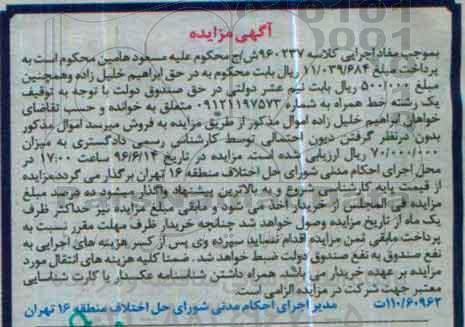 آگهی مزایده
بموجب مفاد اجرایی کلاسه ۹۶۰۲۳۷ش/ج محکوم علیه مسعود هامین محکوم است به
پرداخت مبلغ ۱۱/۰۳۹/۶۸۴ ریال بابت محکوم به در حق ابراهیم خلیل زاده وهمچنین
مبلغ ۵۰۰/۰۰۰ ریال بابت نیم عشر دولتی در حق صندوق دولت با توجه به توقیف
یک رشته خط همراه به شماره ۰۹۱۲۱۱۹۷۵۷۳ متعلق به خوانده و حسب تقاضای
خواهان ابراهیم خلیل زاده اموال مذکور از طریق مزایده به فروش میرسد اموال مذکور
بدون درنظر گرفتن دیون احتمالی توسط کارشناس رسمی دادگستری به میزان
۷۰/۰۰۰/۰۰۰ ریال ارزیابی شده است. مزایده در تاریخ ۹۶/۶/۱۴ ساعت ۱۷:۰۰ در
محل اجرای احکام مدنی شورای حل اختلاف منطقه ۱۶ تهران برگذار می گردد.مزایده
از قیمت پایه کارشناسی شروع و به بالاترین پیشنهاد واگذار میشود ده درصد مبلغ
مزایده فی المجلس از خریدار اخذ می شود و مابقی مبلغ مزایده نیز حداکثر ظرف
یک ماه از تاریخ مزایده وصول خواهد شد چنانچه خریدار ظرف مهلت مقرر نسبت به
پرداخت مابقی ثمن مزایده اقدام ننماید سپرده وی پس از کسر هزینه های اجرایی به
نفع صندوق به نفع صندوق دولت ضبط خواهد شد. ضمنا کلیه هزینه های انتقال مورد
مزایده بر عهده خریدار می باشد. همراه داشتن شناسنامه عکسدار یا کارت شناسایی
معتبر جهت شرکت در مزایده الزامی است.
۱۱۰/۶۰۹۶۲ت مدیر اجرای احکام مدنی شورای حل اختلاف منطقه ۱۶ تهران